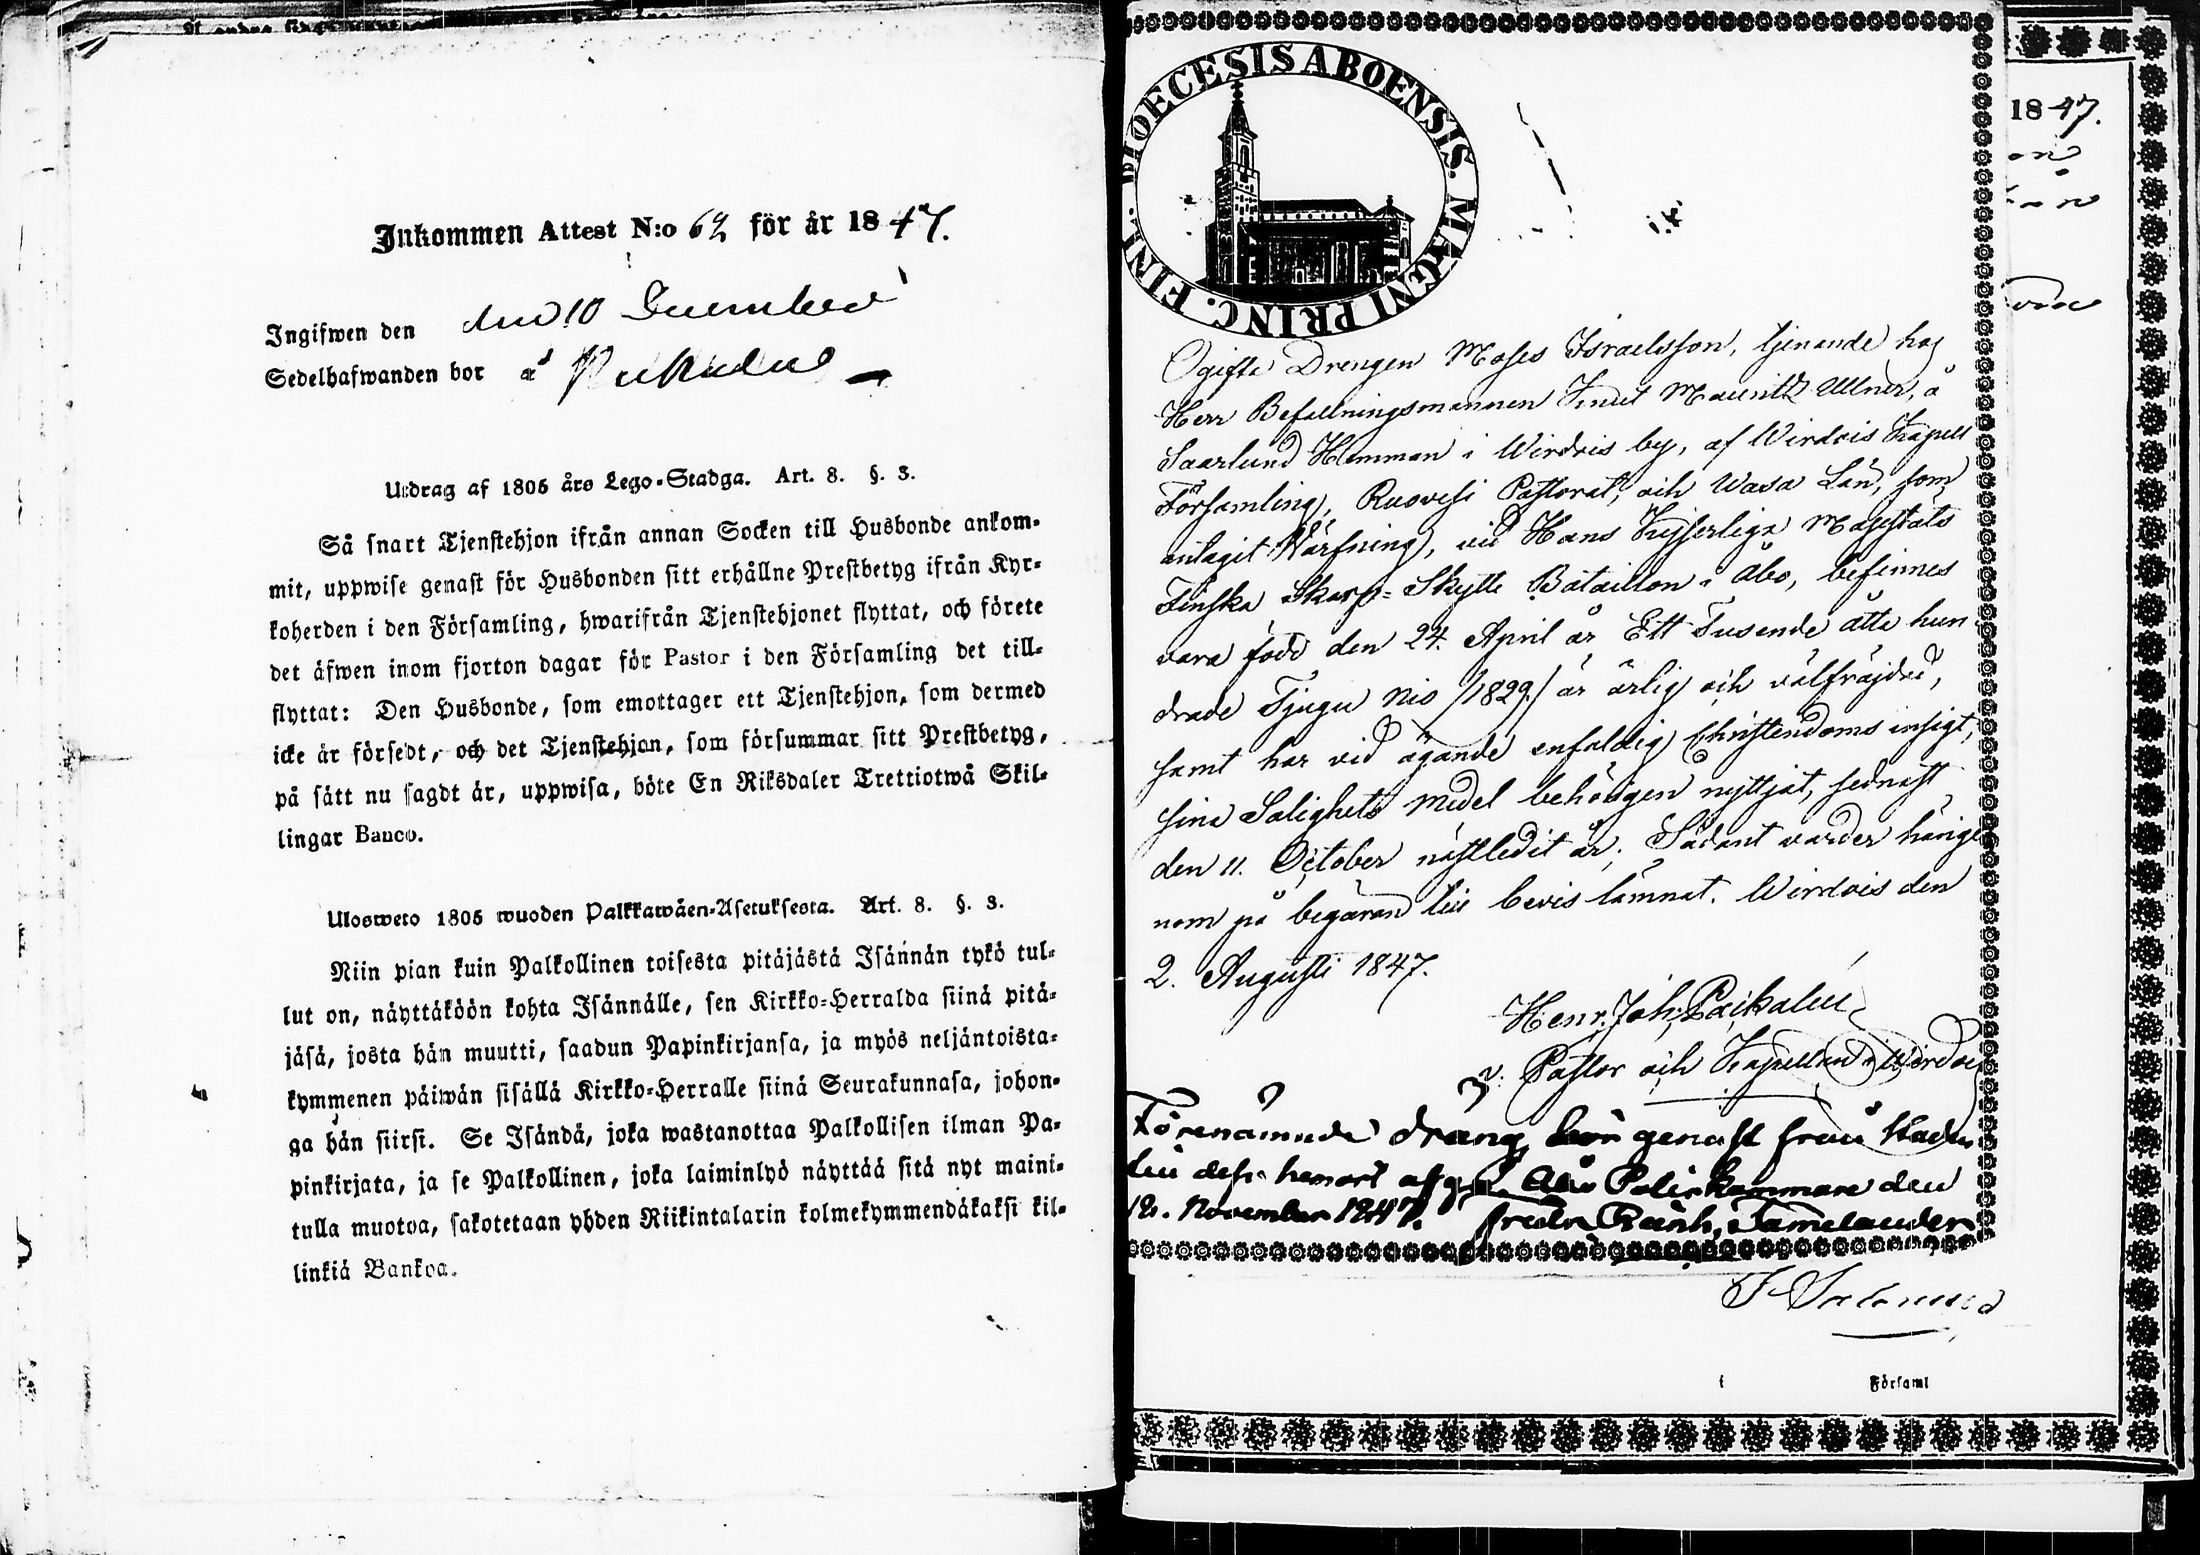 Inkommen Attest N:o 62 för år 1847.
Ingifwen den den 10 December
Sedelhafwanden bor å
Utdrag af 1805 års Lego-Stadga. Art. 8. §. 3.
Så snart Tjenstehjon ifrån annan Socken till Husbonde ankom-
mit, uppwise genast för Husbonden sitt erhållne Prestbetyg ifrån Kyr-
koherden i den Församling, hwarifrån Tjenstehjonet flyttat, och förete
det äfwen inom fjorton dagar för Pastor i den Församling det till-
flyttat: Den Husbonde, som emottager ett Tjenstehjon, som dermed
icke är försedt, och det Tjenstehjon, som försummar sitt Prestbetyg,
på sätt nu sagdt är, uppwisa, böte En Riksdaler Trettiotwå Skil-
lingar Banco.
Ulosweto 1805 wuoden Palkkawäen-Asetuksesta. Art. 8. §. 3.
Niin pian kuin Palkollinen toisesta pitäjästä Isännän tykö tul-
lut on, näyttäköön kohta Isännälle, sen Kirkko-Herralda siinä pitä-
jäsä, josta hän muutti, saadun Papinkirjansa, ja myös neljäntoista-
kymmenen päiwän sisällä Kirkko-Herralle siinä Seurakunnasa, johon-
ga hän siirsi. Se Isändä, joka wastanottaa Palkollisen ilman Pa-
pinkirjata, ja se Palkollinen, joka laiminlyö näyttää sitä nyt maini-
tulla muotoa, sakotetaan yhden Riikintalarin kolmekymmendäkaksi kil-
linkiä Bankoa.
DIOECESIS ABOENSIS. MAGNI PRINC. FINL.
Ogifte Drengen Moses Israelsson, tjenande hos
Herr Befallningsmannen Knut Mauritz Ullner, å
Saarlund Hemman i Wirdois by, af Wirdois Kapell
Församling, Ruovesi Pastorat, och Wasa Län, som
antagit Wärfning, vid Hans Kejserliga Majestäts
Finska Skarp-Skytte Bataillon i Åbo, befinnes
vara född den 24. April år Ett Tusende åtta hun
drade Tjugu Nio /1829/ är ärlig och välfräjdad,
samt har vid ägande enfaldig Christendoms insigt,
sina Salighets medel behörigen nyttjat, sednast
den 11. October nästledit år. Sådant varder härige
nom på begäran till bevis lämnat. Wirdois den
2. Augusti 1847.
Henr. Joh. Paikalin
v. Pastor och Kapellan i Wirdois
Förenämnde dräng bör genast från staden
till dess hemort afgå. Åbo Poliskammare den
18. November 1847.
Församl
1847.